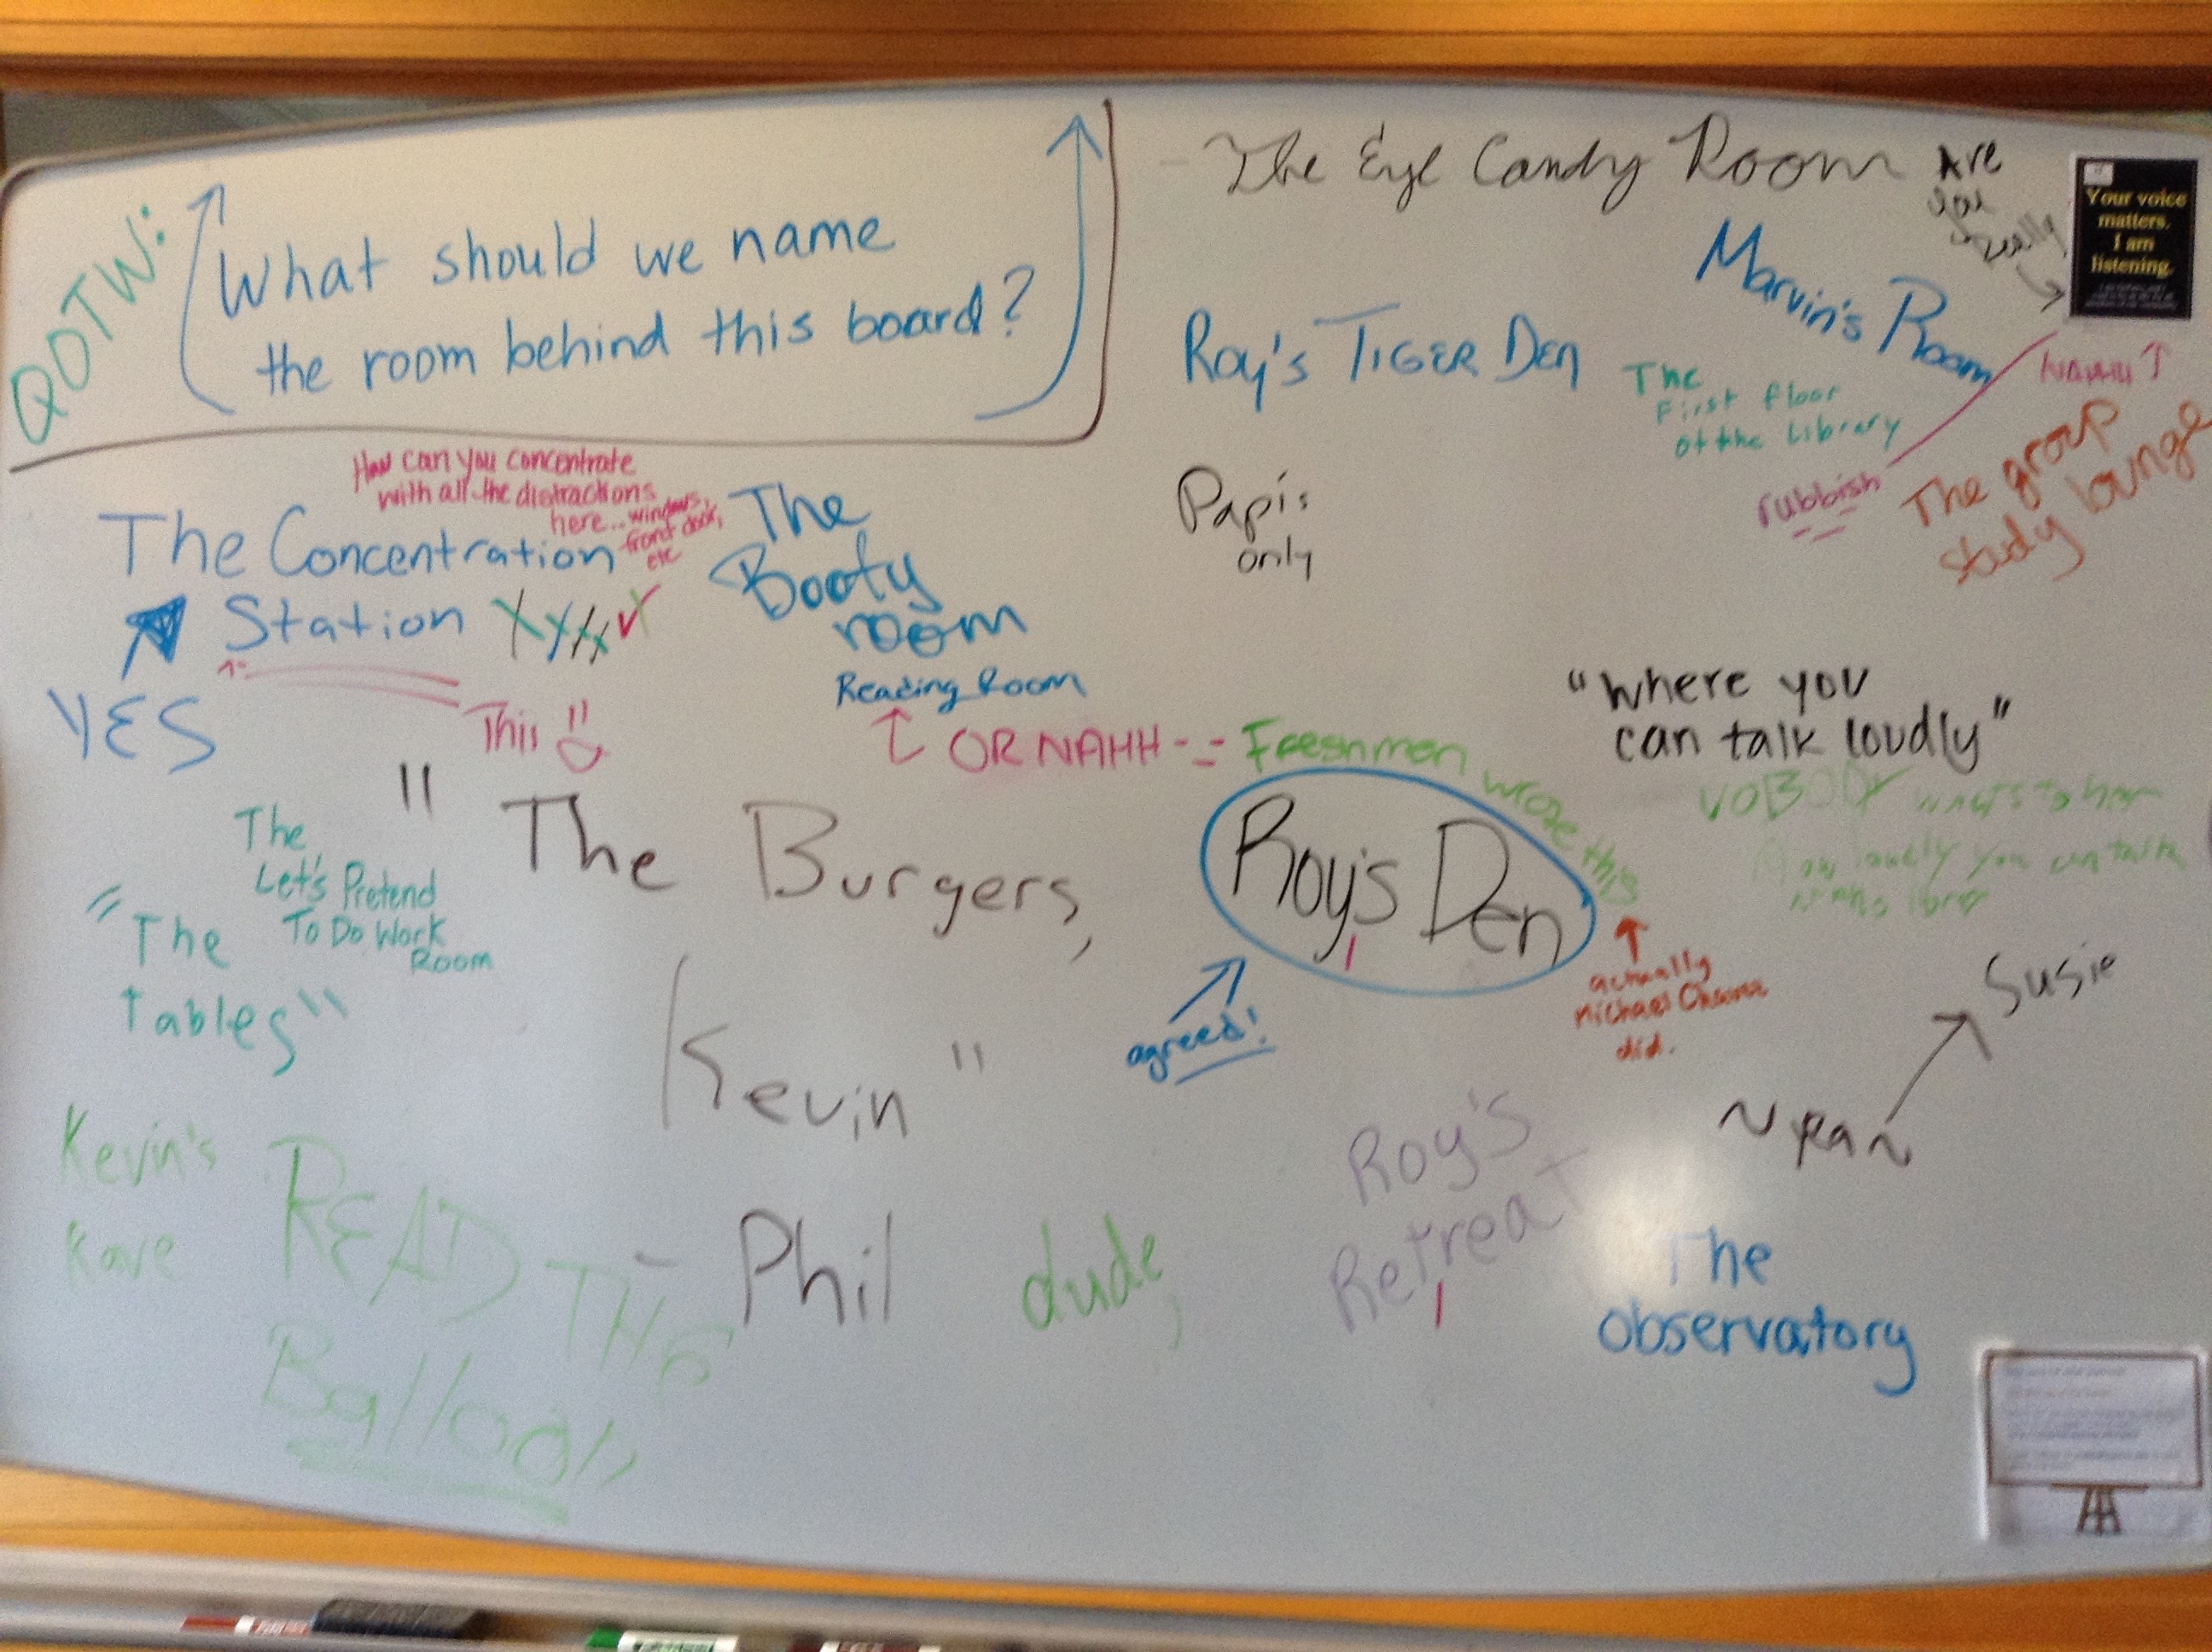 QOTW:
What should we name
the room behind this board?
The Eye Candy Room
Are
you
really
Your voice
matters.
I am
listening.
NAHHH
Marvin's Room
Roy's TIGER DEN
The
First floor
of the Library
rubbish
The group
study lounge
How can you concentrate
with all the distractions
here... windows,
front desk,
etc
The Concentration
Station
YES
This
The
Booty
room
Reading Room
OR NAHH
Freshmen wrote this
Papi's
only
"where you
can talk loudly"
NOBODY wants to hear
How loudly you can talk
The
Let's Pretend
To Do Work
Room
"The
Tables"
"The Burgers,
Kevin"
- Phil
Roy's Den
agreed!
actually
Michael
did.
Susie
Kevin's
Kave
READ THE
Balloon
dude,
Roy's
Retreat
The
observatory